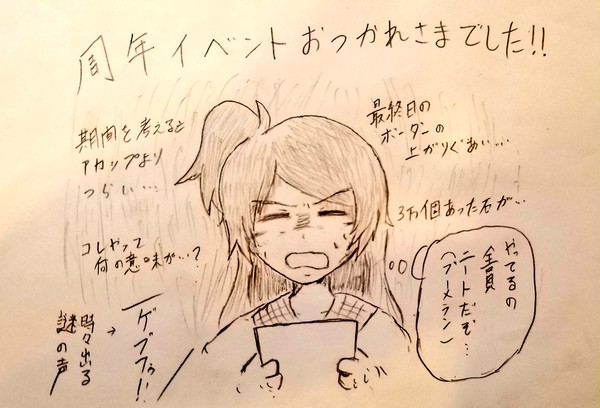 周年イベントおつかれさまでした!!
期間を考えると
アカップより
つらい…
最終日の
ボーダーの
上がりぐあい…
3万個あった石が…
コレやって
何の意味が…?
やってるの
全員
ニートだぞ…
(ブーメラン)
ゲブフゥ!!
時々出る
謎の声